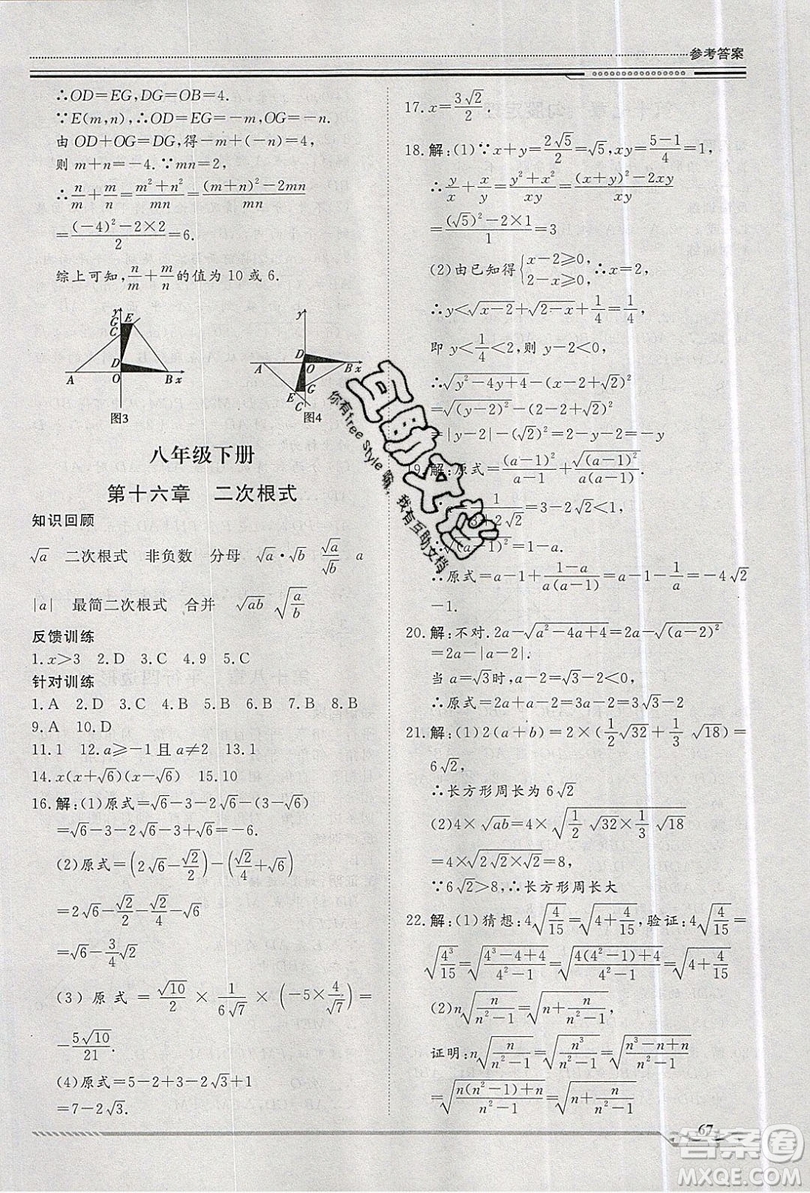 参考答案
∴OD=EG,DG=OB=4.
∵E(m,n),∴OD=EG=m,OG=-n.
由 OD+OG=DG=4,得 m+(-n)=4,
则 m+n=-4.∵mn=2,
∴n/m+m/n=(m²+n²)/mn=((m+n)²-2mn)/mn
=((-4)²-2×2)/2=6.
综上可知,n/m+m/n的值为 10 或 6.
y G E C D A O B x
图3
y D A O B x G E C
图4
八年级下册
第十六章 二次根式
知识回顾
√a 二次根式 非负数 分母 √a·√b √a/√b a
|a| 最简二次根式 合并 √ab √(a/b)
反馈训练
1.x>3 2.D 3.C 4.9 5.D
针对训练
1.A 2.D 3.C 4.C 5.D 6.B 7.B 8.B
9.A 10.D
11.1 12.a≥-1且a≠2 13.1
14.x(x+√6)(x-√6) 15.10
16.解:(1)原式=√6-3-2√6-(3-√6)
=√6-3-2√6-3+√6=-6.
(2)原式=(2√6-√2/2)-(√2/4+√6)
=2√6-√2/2-√2/4-√6
=√6-3/4√2
(3)原式=√10/2×1/(6√7)×(-5×4/√7)=
-5√10/21.
(4)原式=5-2+3-2√3+1
=7-2√3.
17.x=3√2/2.
18.解:(1)∵x+y=2√5/2=√5,xy=(5-1)/4=1,
∴y/x+x/y=(x²+y²)/xy=((x+y)²-2xy)/xy
=((√5)²-2×1)/1=3
(2)由已知得{x-2≥0, 2-x≥0, ∴x=2,
∴y<√(x-2)+√(2-x)+1/4=1/4,
即 y<1/4<2∴y-2<0,
∴√(y²-4y+4)-(2+√2)
=√((y-2)²)-(2-2+√2)
=|y-2|-√2=2-y-√2
19.解:原式=(a-1)²/(a-1)-√((a-1)²)/(a(a-1)),
=3-2√2
∴√((a-1)²)=1-a.
∴原式=a-1+(1-a)/(a(a-1))=-4√2-
-1.
20.解:不对.2a-√(a²-4a+4)=2a-√((a-2)²)
=2a-|a-2|.
当 a=√3时,a-2=√3-2<0,
∴原式=2a+a-2=3a-2=3√3-2
21.解:(1)2(a+b)=2×(1/2√32+1/3√18)=
6√2,
∴长方形周长为6√2
(2)4×√ab=4×√(1/2√32×1/3√18)
=4×√(2√2×√2)=8,
∵6√2>8,∴长方形周长大
22.解:(1)猜想:4√(4/15)=√(4+4/15),验证:4√(4/15)=
√(4³/15)=√((4³-4+4)/(4²-1))=√((4(4²-1)+4)/(4²-1))=√(4+4/15)
(2)n√(n/(n²-1))=√(n+n/(n²-1)),
证明:n√(n/(n²-1))=√(n³/(n²-1))=√((n³-n+n)/(n²-1))
=√((n(n²-1)+n)/(n²-1))=√(n+n/(n²-1))
67
互助文档
你有free Style 嘛,我有互助文档
答案圈
MXQE.COM